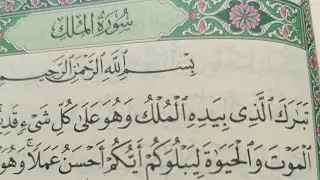 سُورَةُ الْمُلْكِ
بِسْمِ اللَّهِ الرَّحْمَٰنِ الرَّحِيمِ
تَبَٰرَكَ ٱلَّذِى بِيَدِهِ ٱلْمُلْكُ وَهُوَ عَلَىٰ كُلِّ شَىْءٍ قَدِيرٌ
ٱلْمَوْتَ وَٱلْحَيَوٰةَ لِيَبْلُوَكُمْ أَيُّكُمْ أَحْسَنُ عَمَلًا ۚ وَهُوَ